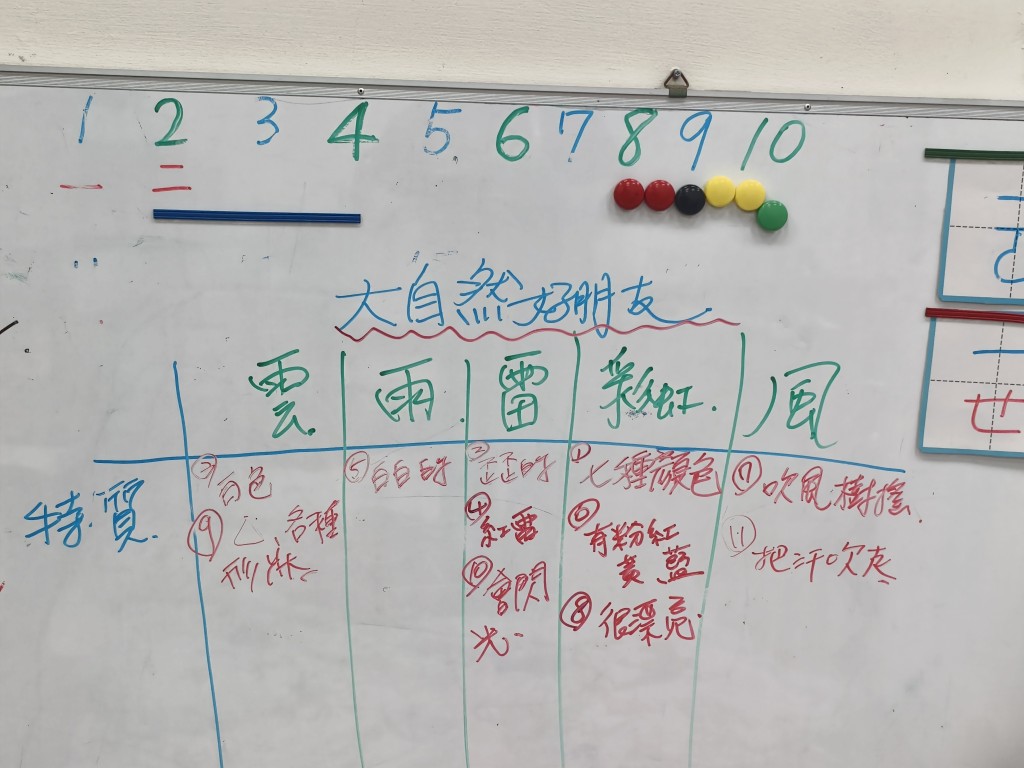 1 2 3 4 5 6 7 8 9 10
一 二
大自然好朋友
雲 雨 雷 彩虹 風
特質
② 白色
⑨ △、各種
形狀
⑤ 白白的
③ 歪歪的
④ 紅雷
⑩ 會閃
光
① 七種顏色
⑥ 有粉紅
黃 藍
⑧ 很漂亮
⑦ 吹風樹搖
⑪ 把汗吹走
せ